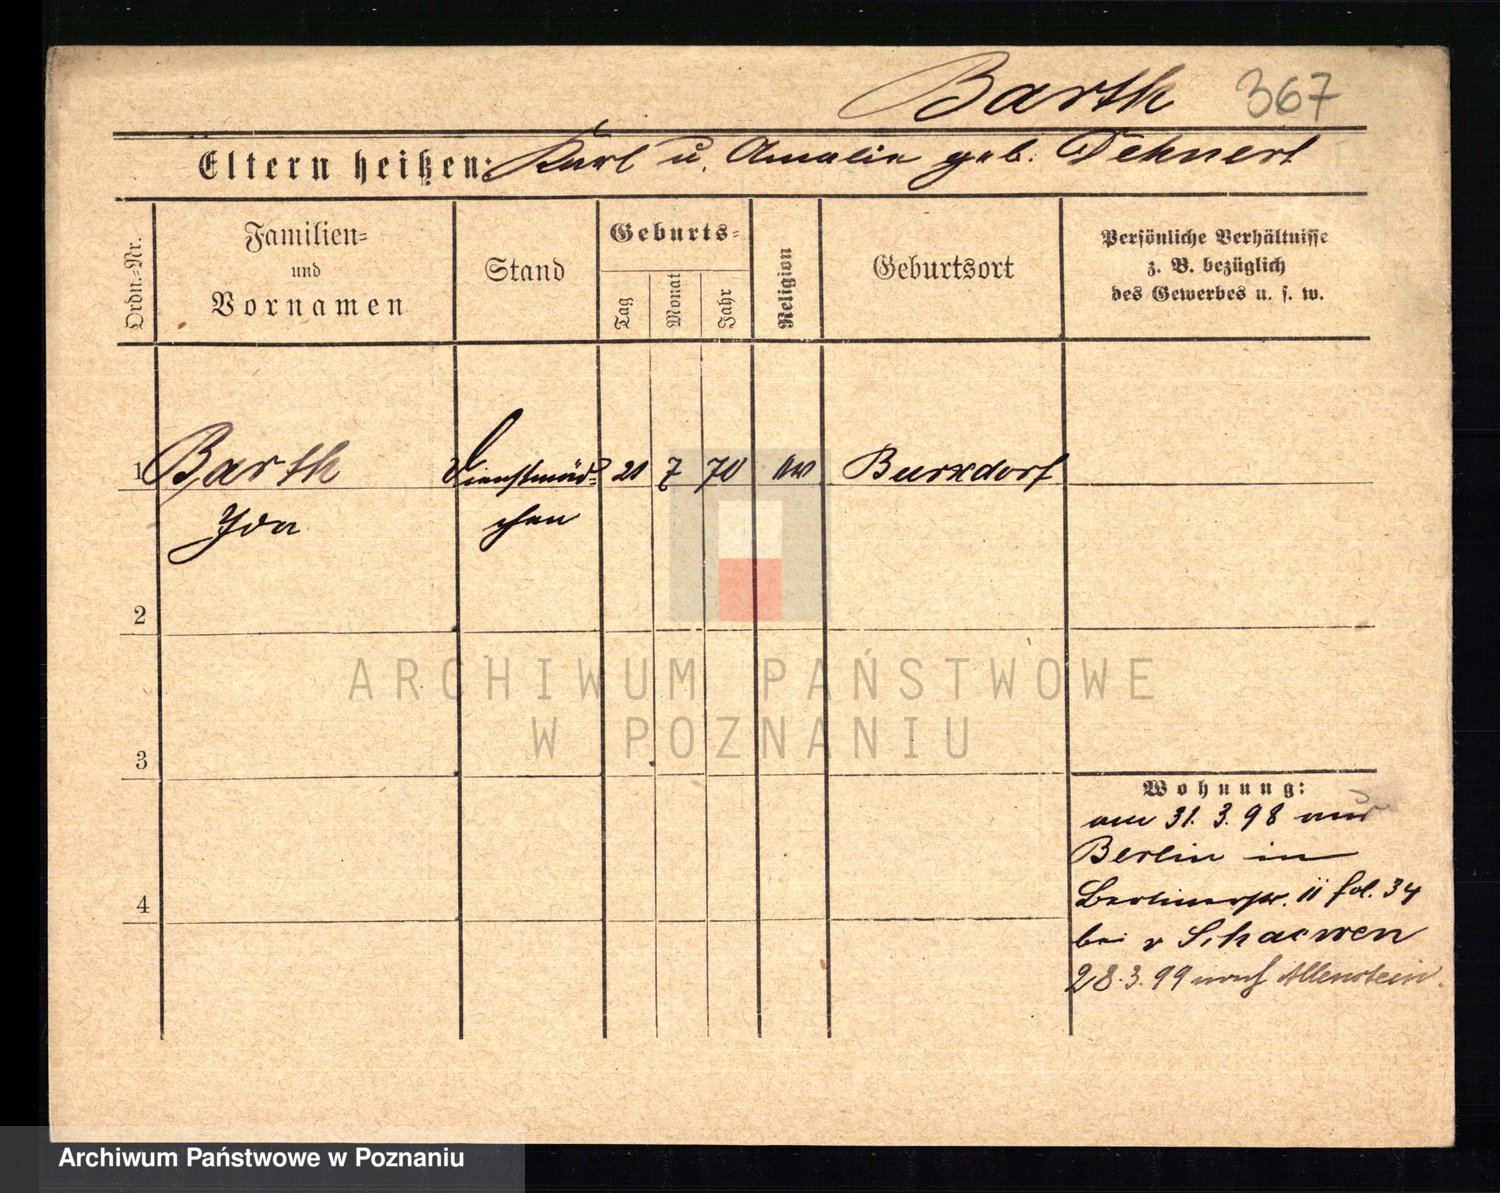 Barth 367
Eltern heißen: Karl u. Amalie geb. Dehnert
Ordn.-Nr.
Familien-
und
Vornamen
Stand
Geburts-
Tag
Monat
Jahr
Religion
Geburtsort
Persönliche Verhältnisse
z. B. bezüglich
des Gewerbes u. s. w.
1 Barth Dienstmäd- 21 7 70 ev Burxdorf
Ida chen
2
3
4
Wohnung:
am 31. 3. 98 aus
Berlin in
Berlinerstr. 11 fol. 34
bei v
28.3.99 nach Allenstein.
ARCHIWUM PAŃSTWOWE
W POZNANIU
Archiwum Państwowe w Poznaniu